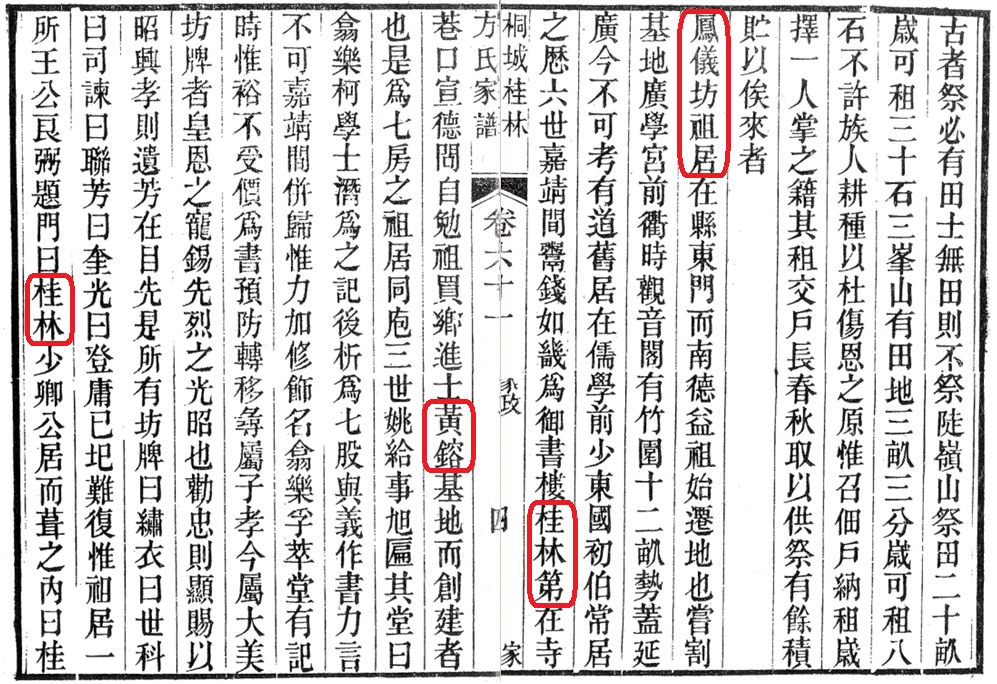 古者祭必有田士無田則不祭陡嶺山祭田二十畝
歲可租三十石三峯山有田地三畝三分歲可租八
石不許族人耕種以杜傷恩之原惟召佃戶納租歲
擇一人掌之籍其租交戶長春秋取以供祭有餘積
貯以俟來者
鳳儀坊祖居在縣東門而南德益祖始遷地也嘗割
基地廣學宮前衢時觀音閣有竹圍十二畝勢蓋延
廣今不可考有道舊居在儒學前少東國初伯常居
之歷六世嘉靖間鬻錢如畿爲御書樓桂林第在寺
桐城桂林
方氏家譜
卷六十一
攷
四
家
巷口宣德間自勉祖買鄉進士黃鎔基地而創建者
也是爲七房之祖居同庖三世姚給事旭匾其堂曰
翕樂柯學士潛爲之記後析爲七股與義作書力言
不可嘉靖間併歸惟力加修飾名翕樂孚萃堂有記
時惟裕不受價爲書預防轉移彝屬子孝今屬大美
坊牌者皇恩之寵錫先烈之光昭也勸忠則顯賜以
昭興孝則遺芳在目先是所有坊牌曰繡衣曰世科
曰司諫曰聯芳曰奎光曰登庸已圯難復惟祖居一
所王公良弼題門曰桂林少卿公居而葺之內曰桂